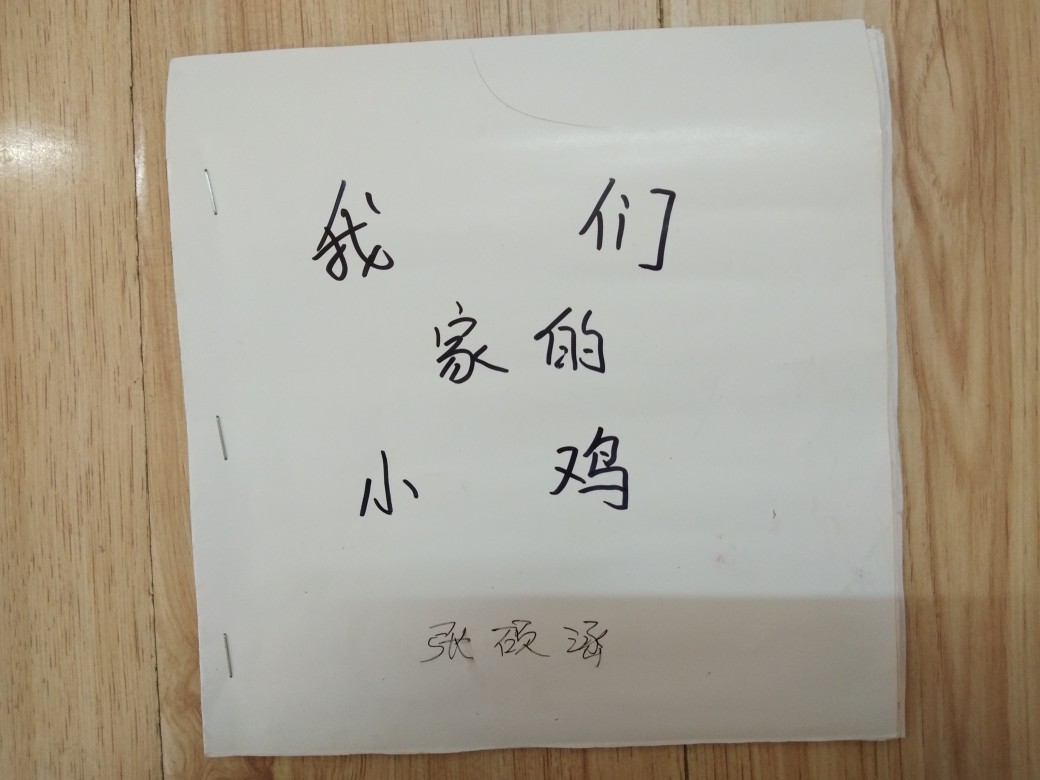 我们
家的
小鸡
张硕涵